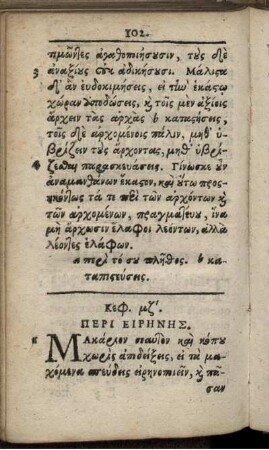 102.
πμῶντες ἀγαθοποιήσουσιν, τοὺς δὲ
3 ἀναξίους οὐκ ἀδικήσουσι. Μάλιστα
δ' ἂν εὐδοκιμήσεις, εἰ τὼ ἑκάστῳ
χώραν ἀποδώσεις, καὶ τοῖς μὲν ἀξίοις
ἄρχειν τὰς ἀρχὰς b καταστήσεις,
τοῖς δὲ ἀρχομένοις πάλιν, μηθ' ὑ-
βρίζειν τοὺς ἄρχοντας, μηθ' ὑβρί-
4 ζεσθαι παρασκευάσεις. Γίνωσκε οὖν
ἀναμανθάνων ἕκαστον, καὶ οὕτω προς-
ηκόντως τά τε περὶ τῶν ἀρχόντων καὶ
τῶν ἀρχομένων, πραγματεύου, ἵνα
μὴ ἄρχωσιν ἔλαφοι λεόντων, ἀλλὰ
λέοντες ἐλάφων.
a περὶ τό σου πλῆθος. b κα-
ταπιστεύσεις.
Κεφ. μζ'.
ΠΕΡΙ ΕΙΡΗΝΗΣ.
ΜΑκάριον σεαυτὸν καὶ κόπου
χωρὶς ἀποδείξεις, εἰ τὰ μα-
χόμενα σπεύδοις εἰρηνοποιεῖν, καὶ πᾶ-
σαν